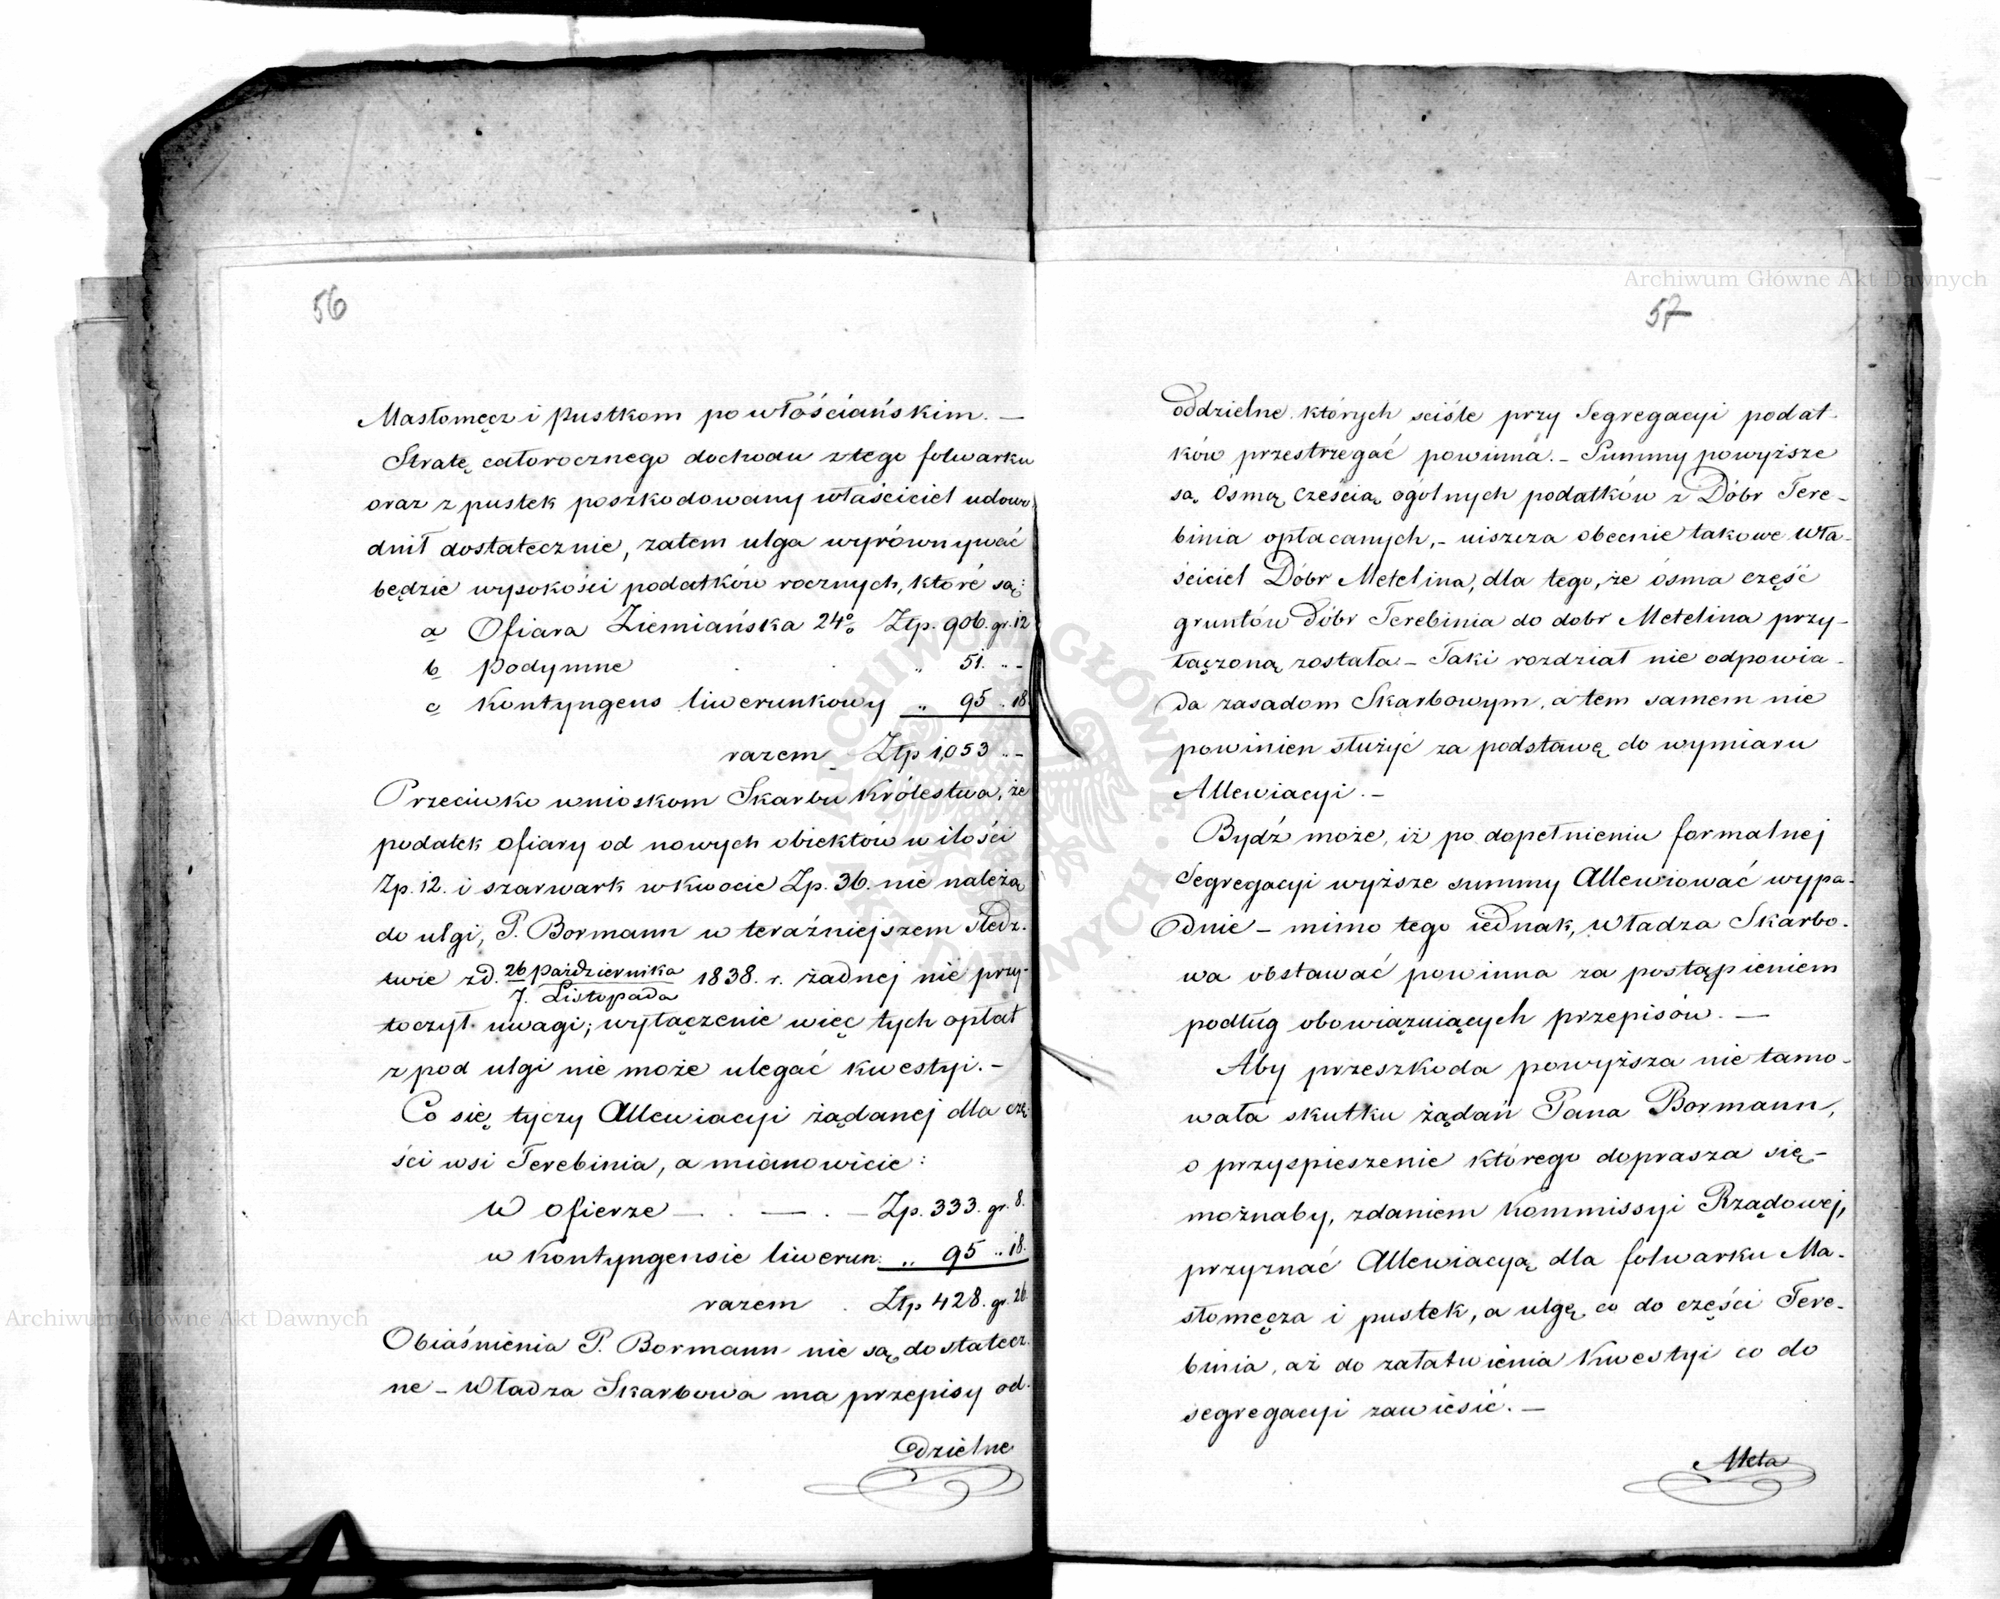 56
Masłomęcz i pustkom po włościańskim. —
Stratę całorocznego dochodu z tego folwarku
oraz z pustek poszkodowany właściciel udowo-
dnił dostatecznie, zatem ulga wyrównywać
będzie wysokości podatków rocznych, które są:
a Ofiara Ziemiańska 24% Ztp. 906. gr. 12
b podymne . . „ 51. „ -
c Kontyngens liwerunkowy „ 95 „ 18.
razem Ztp 1,053 „ -
Przeciwko wnioskom Skarbu Królestwa, że
podatek ofiary od nowych obiektów w ilości
Zp. 12. i szarwark w kwocie Zp. 36. nie należą
do ulgi, P. Bormann w teraźniejszem śledz-
twie z d. 26 października / 7. Listopada 1838. r. żadnej nie przy-
toczył uwagi; wyłączenie więc tych opłat
z pod ulgi nie może ulegać kwestyi. –
Co się tyczy Allewiacyi żądanej dla czę-
ści wsi Terebinia, a mianowicie:
w ofierze — . — . — Zp. 333. gr. 8.
w Kontyngensie liwerun: „ 95 „ 18.
razem . Ztp 428. gr. 26.
Obiaśnienia P. Bormann nie są dostatecz-
ne – Władza Skarbowa ma przepisy od-
dzielne
57
oddzielne których sciśle przy Segregacyi podat-
ków przestrzegać powinna. – Summy powyższe
są ósmą cześcią ogólnych podatków z Dóbr Tere-
binia opłacanych, – uiszcza obecnie takowe wła-
ściciel Dóbr Metelina, dla tego, że ósma część
gruntów Dóbr Terebinia do dobr Metelina przy-
łączoną została – Taki rozdział nie odpowia-
da zasadom Skarbowym, a tem samem nie
powinien służyć za podstawę do wymiaru
Allewiacyi. –
Bydź może, iż po dopełnieniu formalnej
Segregacyi wyższe summy Allewiować wypa-
dnie – mimo tego iednak, Władza Skarbo-
wa obstawać powinna za postąpieniem
podług obowiązuiących przepisów. —
Aby przeszkoda powyższa nie tamo-
wała skutku żądań Pana Bormann,
o przyspieszenie którego doprasza się –
możnaby, zdaniem Kommissyi Rządowej,
przyznać Allewiacyą dla folwarku Ma-
słomęcza i pustek, a ulgę co do części Tere-
binia, aż do załatwienia kwestyi co do
segregacyi zawiesić. —
Meta
Archiwum Główne Akt Dawnych
Archiwum Główne Akt Dawnych
ARCHIWUM GŁÓWNE AKT DAWNYCH